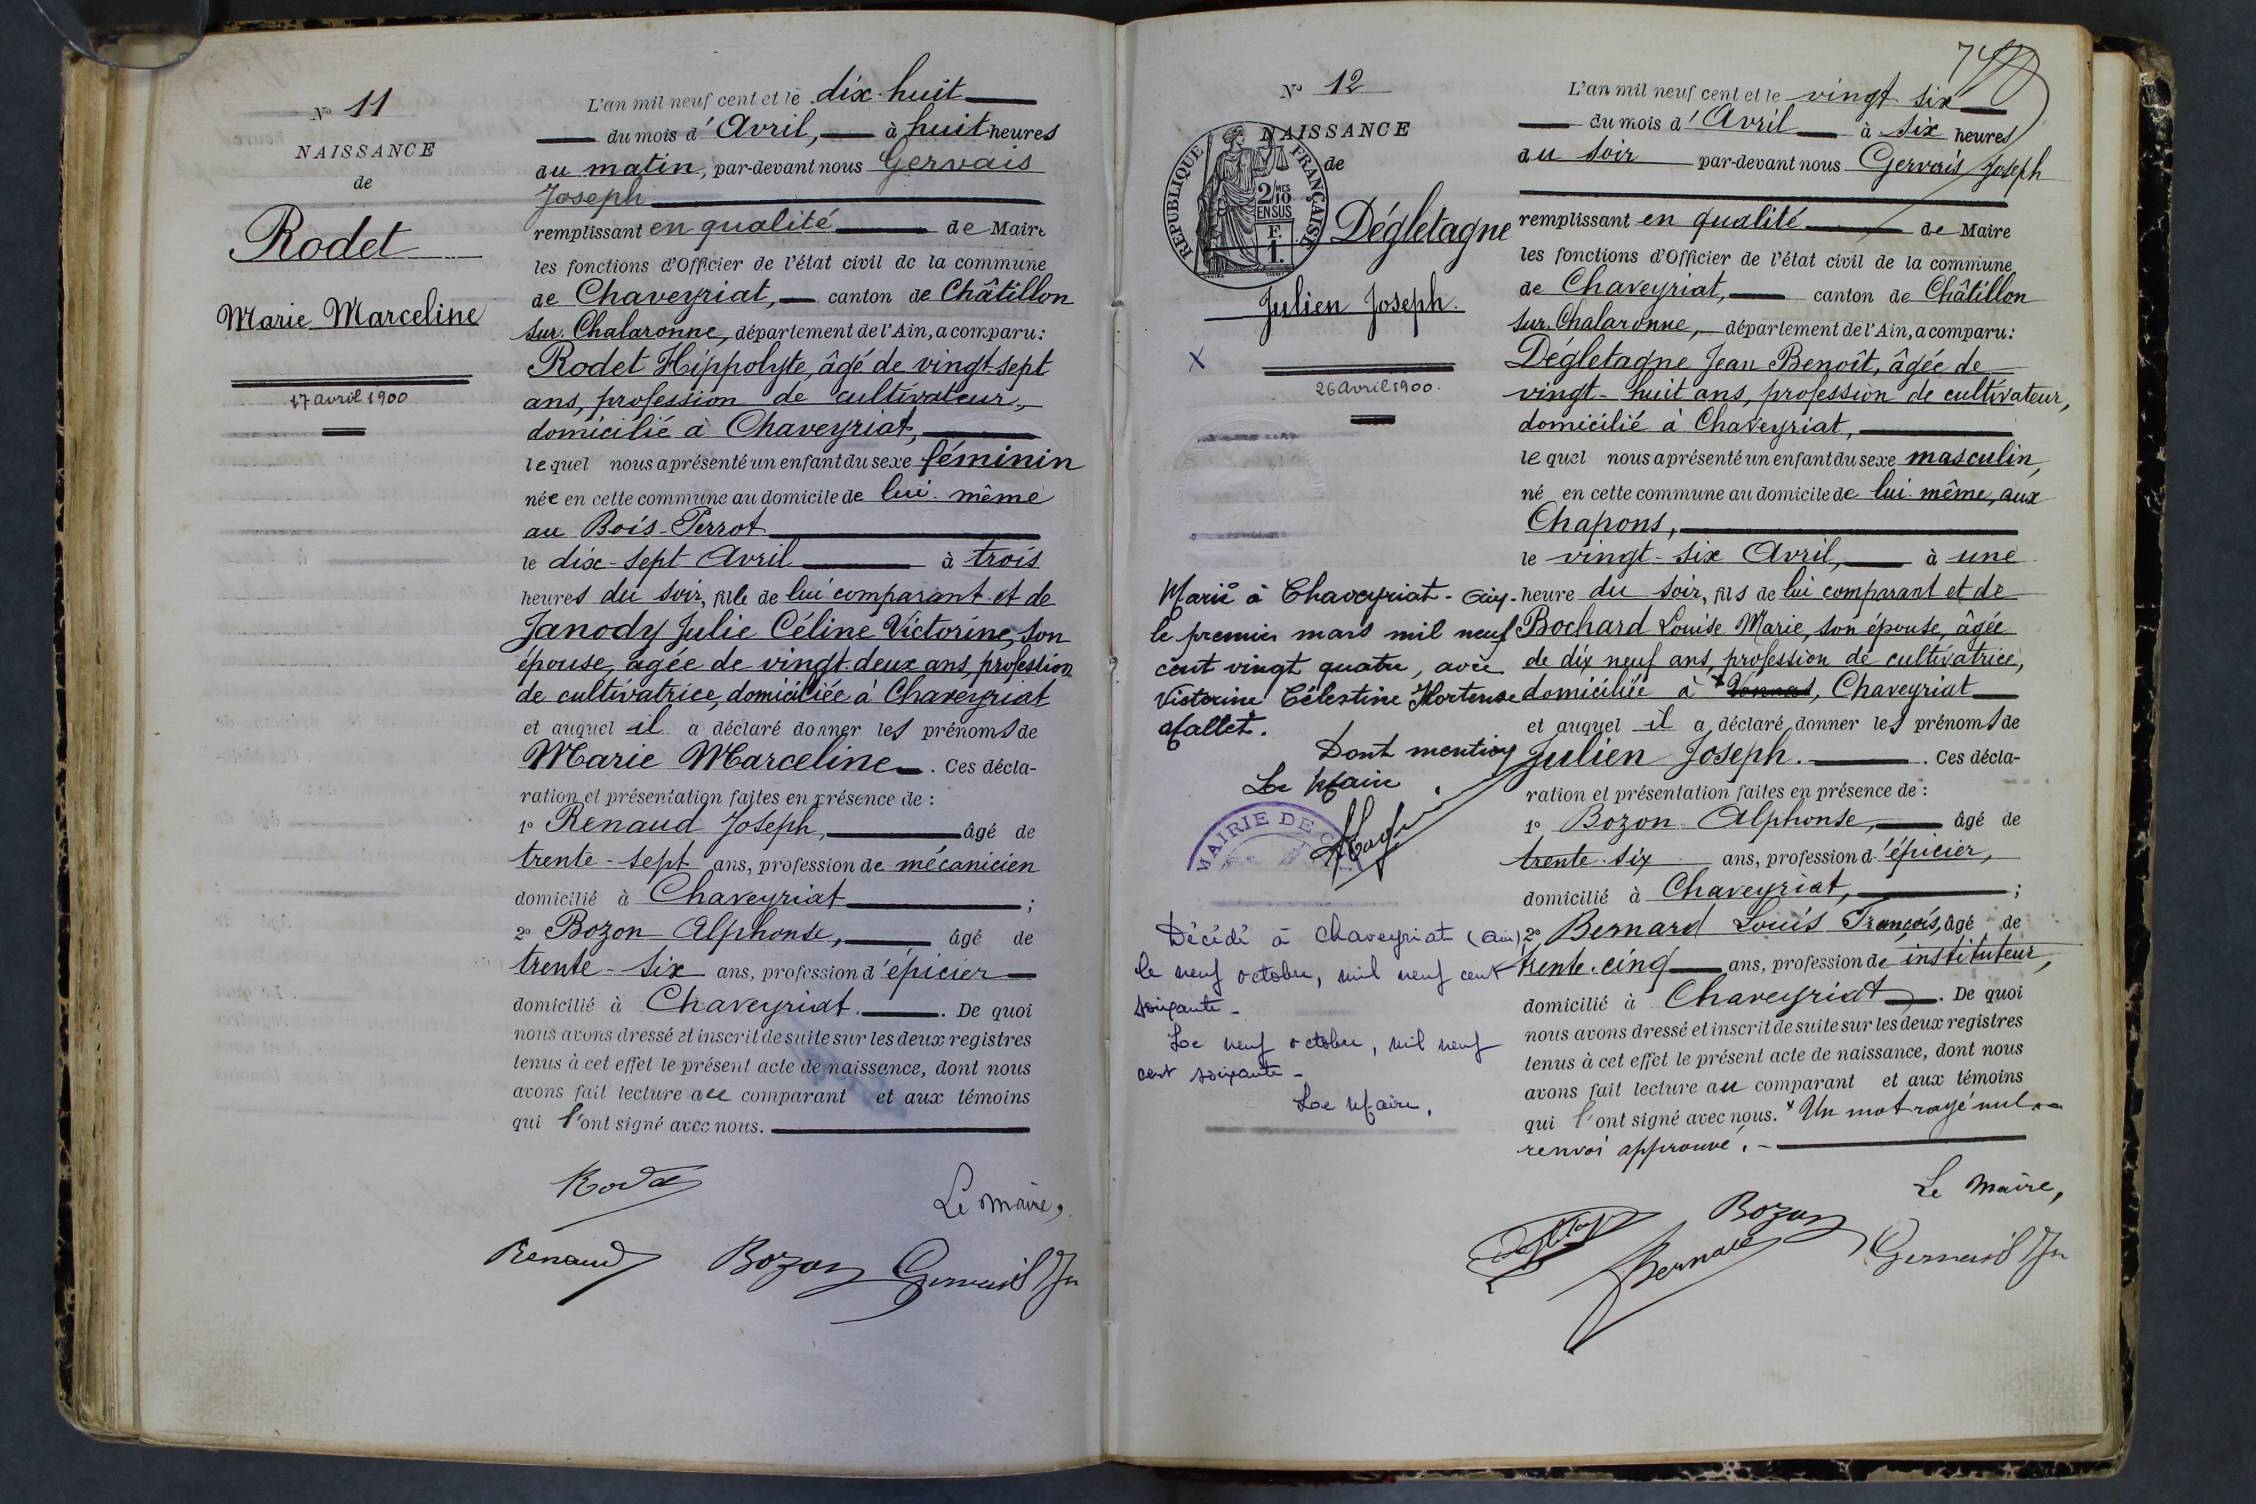 Nº 11
NAISSANCE
de
Rodet
Marie Marceline
17 avril 1900
L'an mil neuf cent et le dix-huit
du mois d'Avril, à huit heures
du matin, par-devant nous Gervais
Joseph
remplissant en qualité de Maire
les fonctions d'Officier de l'état civil de la commune
de Chaveyriat, canton de Châtillon
sur-Chalaronne, département de l'Ain, a comparu:
Rodet Hippolyte, âgé de vingt-sept
ans, profession de cultivateur,
domicilié à Chaveyriat,
lequel nous a présenté un enfant du sexe féminin
née en cette commune au domicile de lui-même
au Bois-Perrot
le dix-sept Avril à trois
heures du soir, fille de lui comparant et de
Janody Julie Céline Victorine, son
épouse, agée de vingt deux ans, profession
de cultivatrice, domiciliée à Chaveyriat
et auquel il a déclaré donner les prénoms de
Marie Marceline. Ces décla-
ration et présentation faites en présence de :
1º Renaud Joseph, âgé de
trente-sept ans, profession de mécanicien
domicilié à Chaveyriat ;
2º Bozon Alphonse, âgé de
trente-six ans, profession d'épicier
domicilié à Chaveyriat. De quoi
nous avons dressé et inscrit de suite sur les deux registres
tenus à cet effet le présent acte de naissance, dont nous
avons fait lecture au comparant et aux témoins
qui l'ont signé avec nous.
Rodet
Le Maire,
Renaud Bozon Gervais Jh
Nº 12
NAISSANCE
de
REPUBLIQUE FRANÇAISE
2/10 MES
EN SUS
F.
1.
Dégletagne
Julien Joseph.
X
26 avril 1900.
Marié à Chaveyriat - Ain -
le premier mars mil neuf
cent vingt quatre, avec
Victorine Célestine Hortense
Mallet.
Dont mention
Le Maire
MAIRIE DE C
Décédé à Chaveyriat (Ain)
le neuf octobre, mil neuf cent
soixante -
Le neuf octobre, mil neuf
cent soixante -
Le Maire,
L'an mil neuf cent et le vingt six
du mois d'Avril à six heures
du soir par-devant nous Gervais Joseph
remplissant en qualité de Maire
les fonctions d'Officier de l'état civil de la commune
de Chaveyriat, canton de Châtillon
sur-Chalaronne, département de l'Ain, a comparu:
Dégletagne Jean Benoît, âgée de
vingt-huit ans, profession de cultivateur,
domicilié à Chaveyriat,
lequel nous a présenté un enfant du sexe masculin,
né en cette commune au domicile de lui-même, aux
Chapons,
le vingt-six Avril, à une
heure du soir, fils de lui comparant et de
Bochard Louise Marie, son épouse, âgée
de dix neuf ans, profession de cultivatrice,
domiciliée à x Vonnas, Chaveyriat
et auquel il a déclaré donner les prénoms de
Julien Joseph. Ces décla-
ration et présentation faites en présence de :
1º Bozon Alphonse, âgé de
trente-six ans, profession d'épicier,
domicilié à Chaveyriat, ;
2º Bernard Louis François, âgé de
trente-cinq ans, profession de instituteur,
domicilié à Chaveyriat. De quoi
nous avons dressé et inscrit de suite sur les deux registres
tenus à cet effet le présent acte de naissance, dont nous
avons fait lecture au comparant et aux témoins
qui l'ont signé avec nous. x Un mot rayé nul
renvoi approuvé.
Le Maire,
Bozon
Bernard Gervais Jh